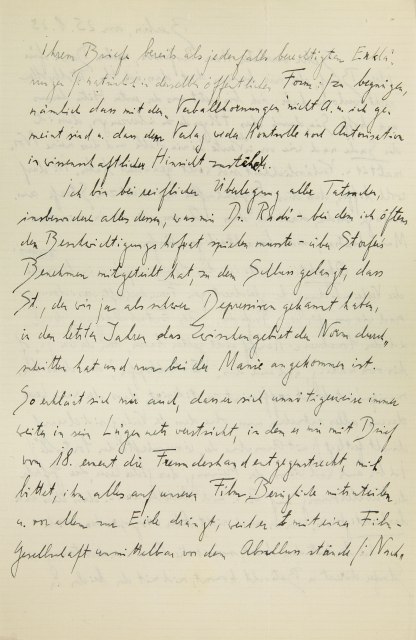 Ihrem Briefe bereits als jedenfalls berechtigten Erklä-
rungen (natürlich in derselben öffentlichen Form :/ zu begnügen,
nämlich dass mit den „Verballhornungen" nicht A. u. ich ge-
meint sind u. dass dem Verlag weder Kontrolle noch Autorisation
in wissenschaftlicher Hinsicht zusteht.
Ich bin bei reiflicher Überlegung aller Tatsachen,
insbesondere alles dessen, was mir Dr. Radó – bei dem ich öfters
den Beschwichtigungshofrat spielen musste – über Storfers
Benehmen mitgeteilt hat, zu dem Schluss gelangt, dass
St., den wir ja als schwer Depressiven gekannt haben,
in den letzten Jahren das Zwischengebiet der Norm durch-
schritten hat und nun bei der Manie angekommen ist.
So erklärt sich mir auch, dass er sich unnötigerweise immer
weiter in sein Lügennetz verstrickt, in dem er mir mit Brief
vom 18. erneut die Freundeshand entgegenstreckt, mich
bittet, ihm alles auf unseren Film Bezügliche mitzuteilen
u. vor allem zur Eile drängt, weil er mit einer Film-
gesellschaft unmittelbar vor dem Abschluss stände /: